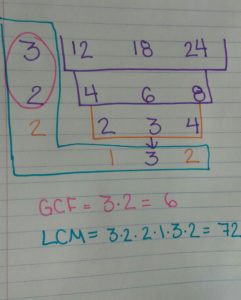 3 12 18 24
2 4 6 8
2 2 3 4
1 3 2
GCF = 3·2 = 6
LCM = 3·2·2·1·3·2 = 72